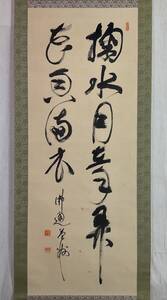 掬水月在手弄
花香満衣
佛通